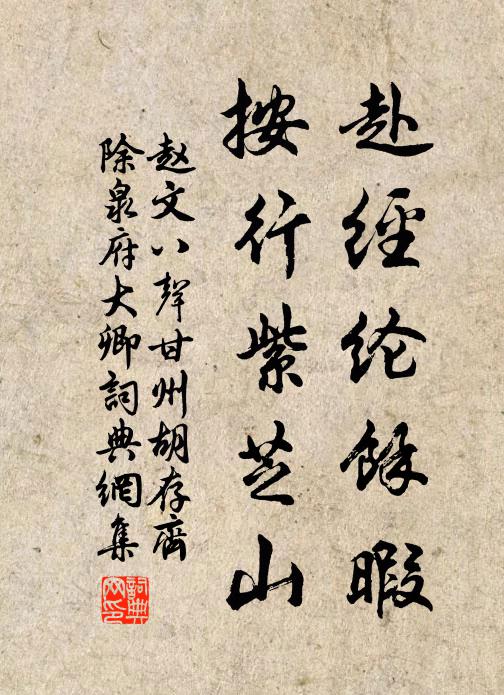 赴經纶餘暇
按行紫芝山
赵文八聲甘州胡存齊
除泉府大卿詞典網集
詞典网印